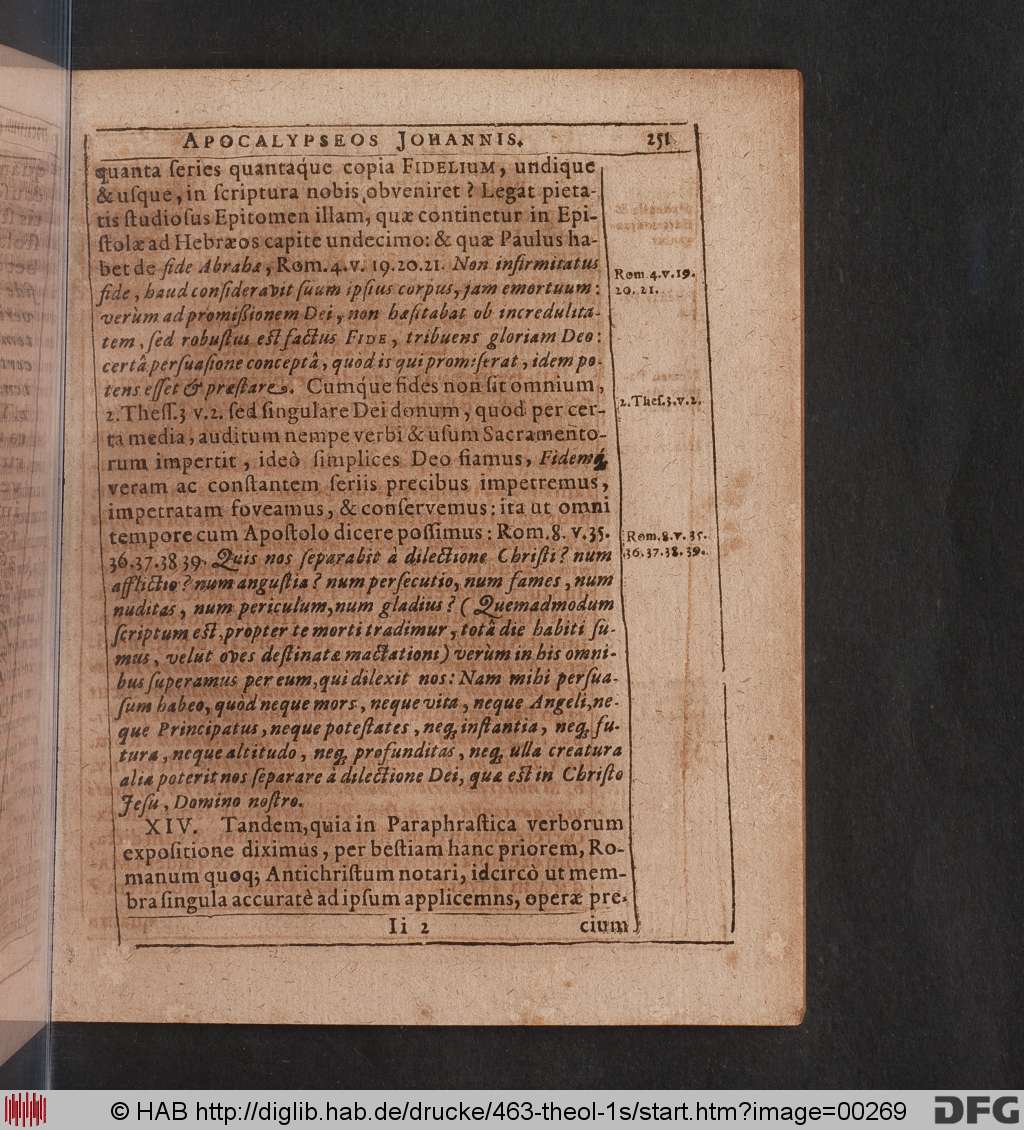 APOCALYPSEOS JOHANNIS. 251
quanta ſeries quantaq́ue copia FIDELIUM, undique
& uſque, in ſcriptura nobis obveniret? Legat pieta-
tis ſtudioſus Epitomen illam, quæ continetur in Epi-
ſtolæ ad Hebræos capite undecimo: & quæ Paulus ha-
bet de fide Abrahæ, Rom. 4. v. 19. 20. 21. Non infirmitatus
fide, haud conſideravit ſuum ipſius corpus, jam emortuum:
verùm ad promißionem Dei, non hæſitabat ob incredulita-
tem, ſed robuſtus eſt factus FIDE, tribuens gloriam Deo:
certâ perſuaſione conceptâ, quòd is qui promiſerat, idem po-
tens eſſet & præſtare. Cumque fides non ſit omnium,
2. Theſſ. 3 v. 2. ſed ſingulare Dei donum, quod per cer-
ta media, auditum nempe verbi & uſum Sacramento-
rum impertit, ideò ſimplices Deo fiamus, Fidemq́;
veram ac conſtantem ſeriis precibus impetremus,
impetratam foveamus, & conſervemus: ita ut omni
tempore cum Apoſtolo dicere poſſimus: Rom. 8. v. 35.
36. 37. 38 39. Quis nos ſeparabit à dilectione Chriſti? num
afflictio? num anguſtia? num perſecutio, num fames, num
nuditas, num periculum, num gladius? (Quemadmodum
ſcriptum eſt, propter te morti tradimur, totâ die habiti ſu-
mus, velut oves deſtinatæ mactationi) verùm in his omni-
bus ſuperamus per eum, qui dilexit nos: Nam mihi perſua-
ſum habeo, quòd neque mors, neque vita, neque Angeli, ne-
que Principatus, neque poteſtates, neq; inſtantia, neq; fu-
tura, neque altitudo, neq; profunditas, neq; ulla creatura
alia poterit nos ſeparare à dilectione Dei, quæ eſt in Chriſto
Jeſu, Domino noſtro.
XIV. Tandem, quia in Paraphraſtica verborum
expoſitione diximus, per beſtiam hanc priorem, Ro-
manum quoq; Antichriſtum notari, idcircò ut mem-
bra ſingula accuratè ad ipſum applicemns, operæ pre-
Ii 2 cium
Rom 4. v. 19.
20. 21.
2. Theſ. 3. v. 2.
Rom. 8. v. 35.
36. 37. 38. 39.
© HAB http://diglib.hab.de/drucke/463-theol-1s/start.htm?image=00269
DFG